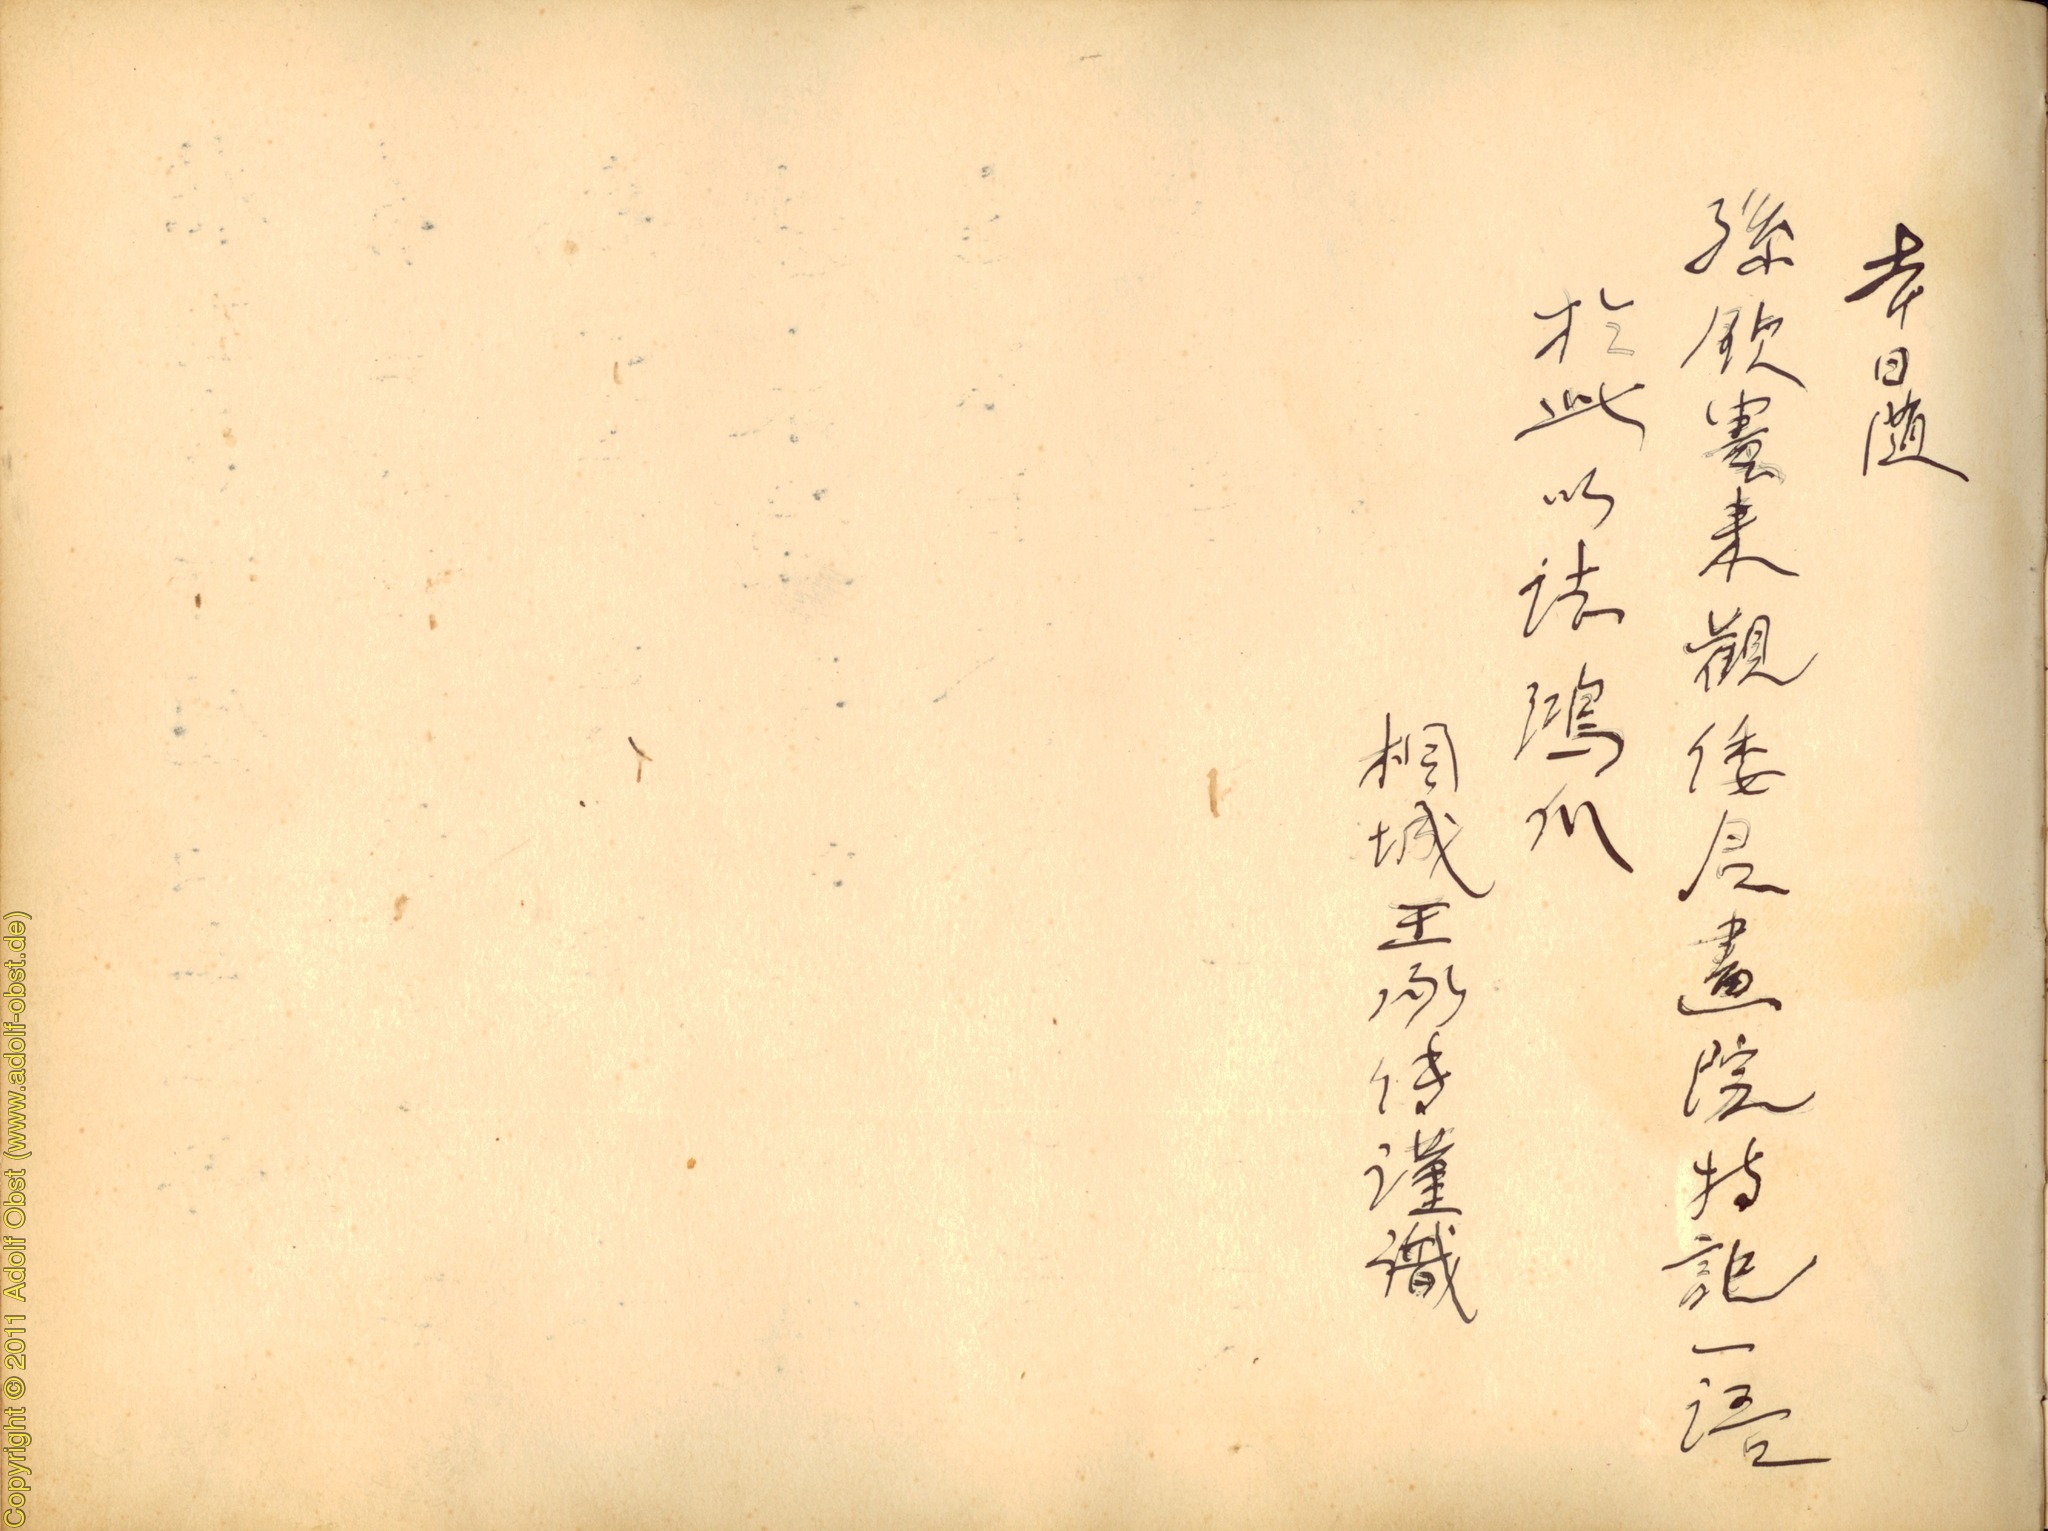 夲日随
孫欽憲来觀倭呂畫院特記一語
於此以誌鴻爪
桐城王承傳謹識
Copyright © 2011 Adolf Obst (www.adolf-obst.de)